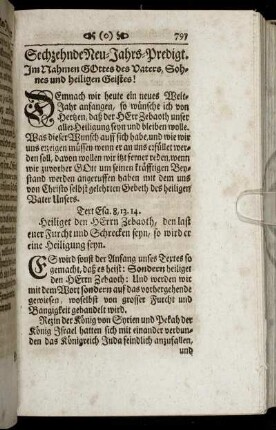 (o) 797
Sechzehnde Neu-Jahrs-Predigt.
Im Nahmen GOttes des Vaters, Soh-
nes und heiligen Geistes!
Demnach wir heute ein neues Welt-
Jahr anfangen, so wünsche ich von
Hertzen, daß der HErr Zebaoth unser
aller Heiligung seyn und bleiben wolle.
Was dieser Wunsch auff sich habe, und wie wir
uns erzeigen müssen wenn er an uns erfüllet wer-
den soll, davon wollen wir itzt ferner reden, wenn
wir zuvorher GOtt um seinen kräfftigen Bey-
stand werden angeruffen haben mit dem uns
von Christo selbst gelehrten Gebeth des heiligen
Vater Unsers.
Text Esa. 8, 13. 14.
Heiliget den HErrn Zebaoth, den last
euer Furcht und Schrecken seyn, so wird er
eine Heiligung seyn.
ES wird sonst der Anfang unses Textes so
gemacht, daß es heist: Sondern heiliget
den HErrn Zebaoth: Und werden wir
mit dem Wort sondern auf das vorhergehende
gewiesen, woselbst von grosser Furcht und
Bangigkeit gehandelt wird.
Rezin der König von Syrien und Pekah der
König Israel hatten sich mit einander verbun-
den das Königreich Juda feindlich anzufallen,
und